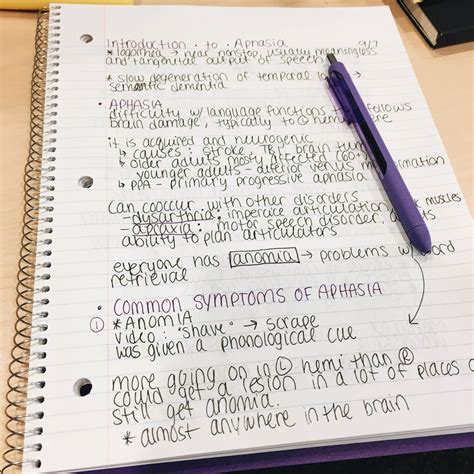 Introduction · to · Aphasia 9/7
* logorrhea → near nonstop, usually meaningless
and tangential output of speech
* slow degeneration of temporal lo →
semantic dementia
• APHASIA
difficulty w/ language functions th follows
brain damage, typically to Ⓛ hemi ere
it is acquired and neurogenic
↳ causes: stroke, TBI, brain tum
↳ older adults mostly affected (60
younger adults - arterior venus m rmation
↳ PPA - primary progressive aphasia
can cooccur with other disorders
- dysarthria: imperice articulation muscles
- apraxia: motor speech disorder. a ts
ability to plan articulators
everyone has anomia → problems w/ word
retrieval
• COMMON SYMPTOMS OF APHASIA
① * ANOMIA
video: "shave" → scrape
was given a phonological cue
more going on in Ⓛ hemi than Ⓡ
could get a lesion in a lot of places
still get anomia.
* almost anywhere in the brain